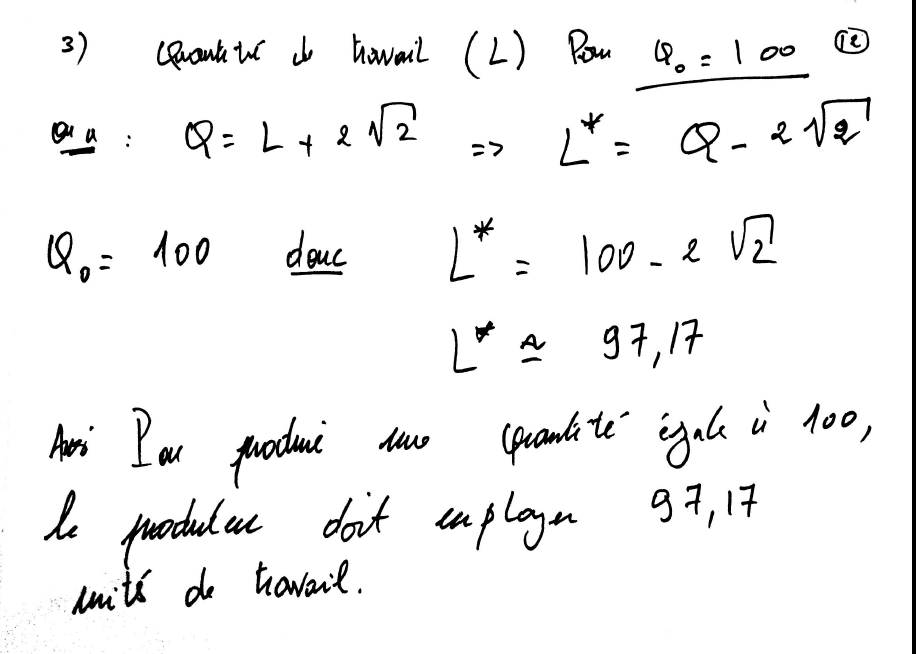 3) Quantité de travail (L) Pour Q₀ = 100 (12)
On a : Q = L + 2√2 => L* = Q - 2√2
Q₀ = 100 donc L* = 100 - 2√2
L* ≃ 97,17
Ainsi Pour produire une quantité égale à 100,
le producteur doit employer 97,17
unités de travail.